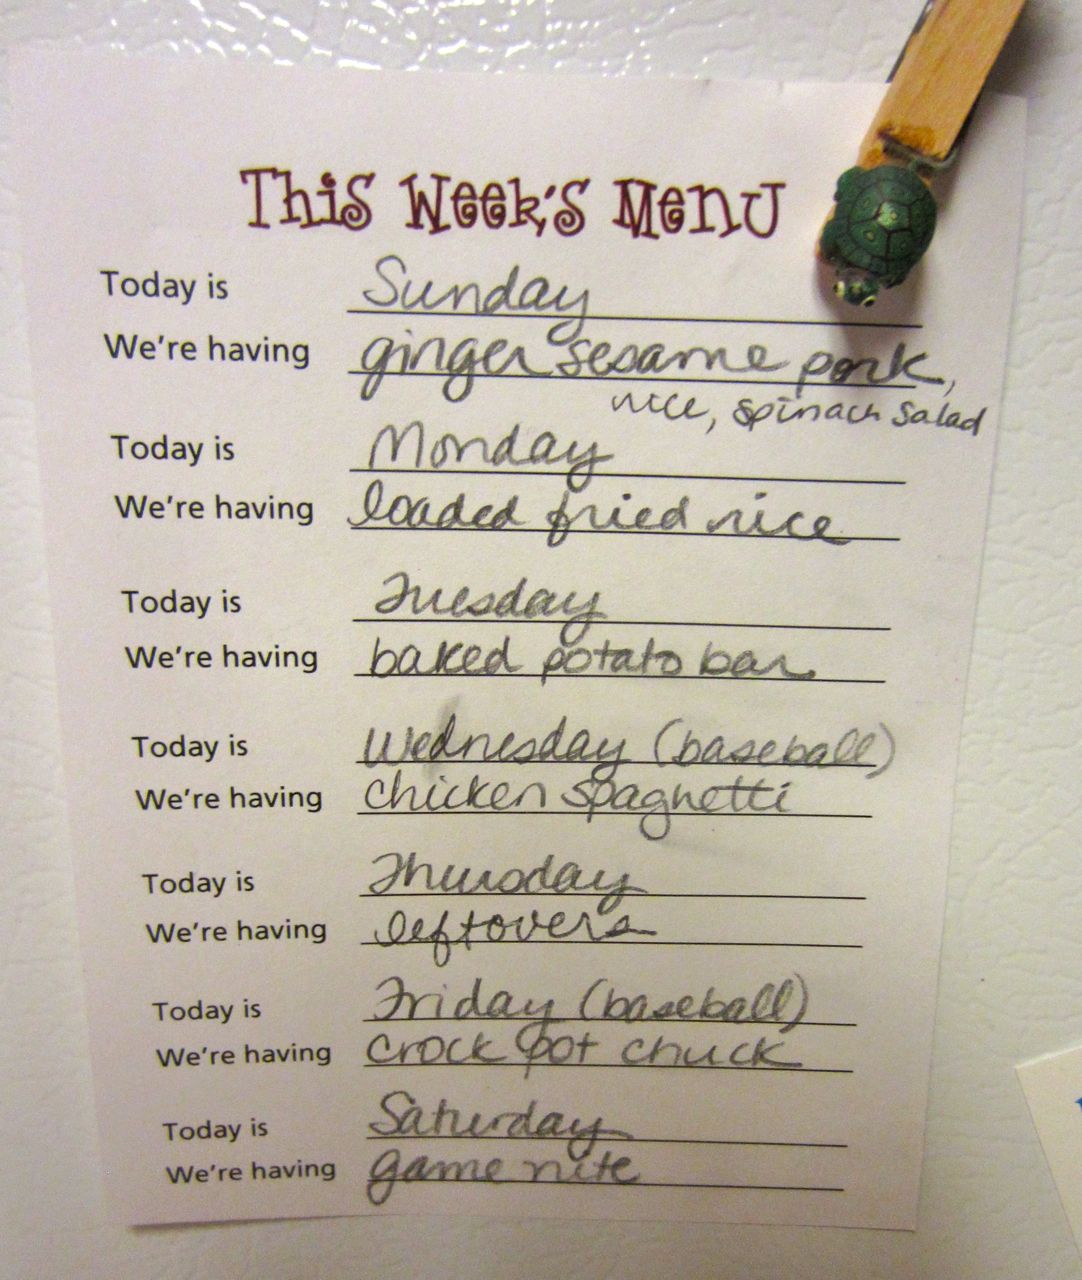 This Week's Menu
Today is Sunday
We're having ginger sesame pork,
rice, spinach salad
Today is Monday
We're having loaded fried rice
Today is Tuesday
We're having baked potato bar
Today is Wednesday (baseball)
We're having chicken spaghetti
Today is Thursday
We're having leftovers
Today is Friday (baseball)
We're having crock pot chuck
Today is Saturday
We're having game nite